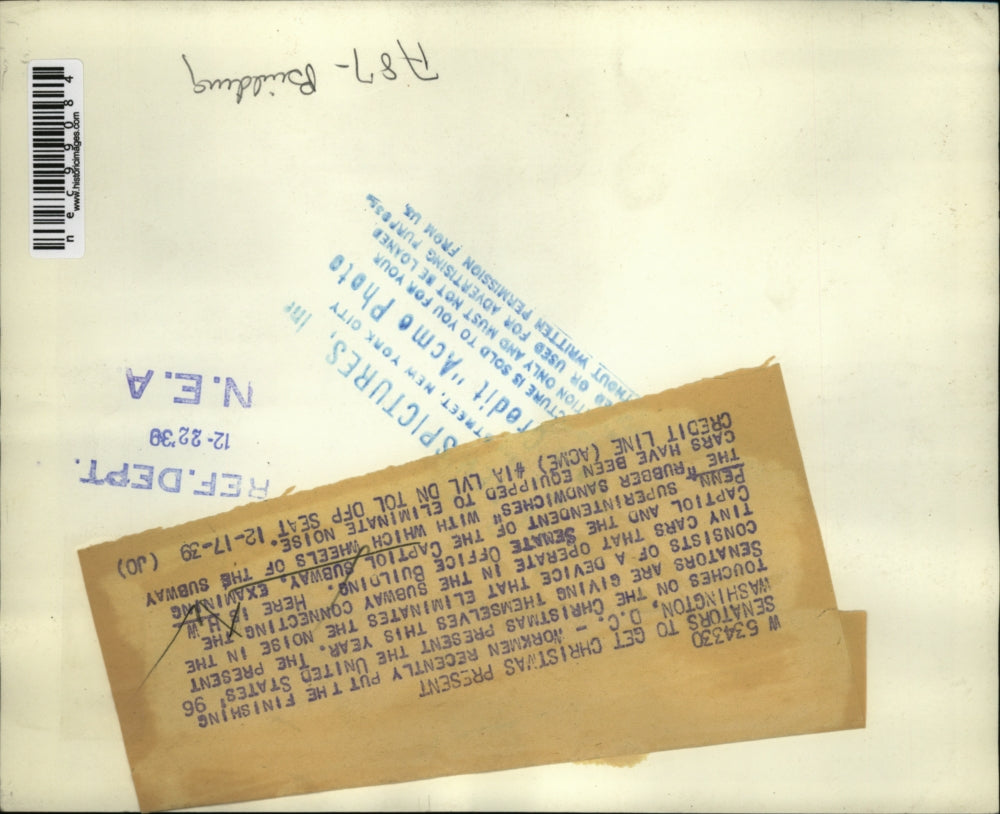 W 534330
SENATORS TO GET CHRISTMAS PRESENT
WASHINGTON, D.C. — WORKMEN RECENTLY PUT THE FINISHING
TOUCHES ON THE CHRISTMAS PRESENT THE UNITED STATES' 96
SENATORS ARE GIVING THEMSELVES THIS YEAR. THE PRESENT
CONSISTS OF A DEVICE THAT ELIMINATES THE NOISE IN THE
TINY CARS THAT OPERATE IN THE SUBWAY CONNECTING THE
CAPTIOL AND THE SENATE OFFICE BUILDING. HERE IS H.W.
PENN, SUPERINTENDENT OF THE CAPTIOL SUBWAY, EXAMINING
THE "RUBBER SANDWICHES" WITH WHICH WHEELS OF THE SUBWAY
CARS HAVE BEEN EQUIPPED TO ELIMINATE THE NOISE.
CREDIT LINE (ACME) #1A LVL DN TOL OFP SEAT 12-17-39 (JO)
REF. DEPT.
12-22'39
N.E.A
SPICTURES, Inc
STREET, NEW YORK CITY
redit "Acme Photo
CTURE IS SOLD TO YOU FOR YOUR
TION ONLY AND MUST NOT BE LOANED
ED OR USED FOR ADVERTISING PURPOSES
THOUT WRITTEN PERMISSION FROM US.
787- Building
nec99084
www.historicimages.com